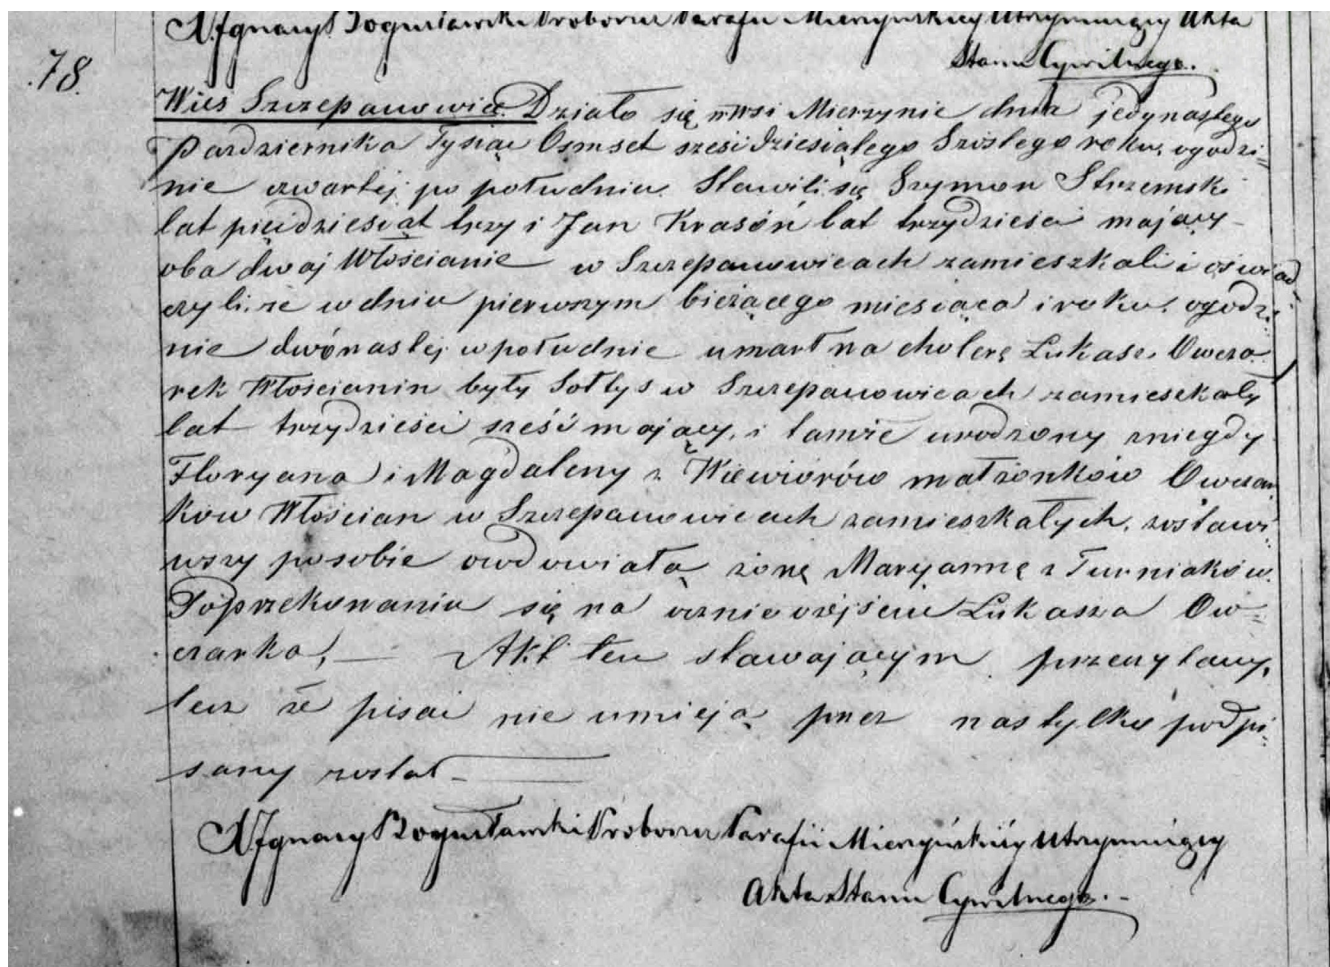 X. Ignacy Bogusławski Proboszcz Parafii Mierzyńskiey Utrzymuiący Akta
Stanu Cywilnego.
78.
Wieś Szczepanowice. Działo się we Wsi Mierzynie dnia jedynastego
Pazdziernika Tysiąc Ośmset sześćdziesiątego Szóstego roku, o godzi=
nie czwartej po południu. Stawili się Szymon Strzemski
lat pięćdziesiąt trzy i Jan Krasoń lat trzydzieści mający
oba dwaj Włościanie w Szczepanowicach zamieszkali i oświad
czyli, że w dniu pierwszym bieżącego miesiąca i roku, o godzi=
nie dwónastej w południe umarł na cholerę Łukasz Owcza
rek Włościanin były Sołtys w Szczepanowicach zamieszkały
lat trzydzieści sześć mający, i tamże urodzony z niegdy
Floryana i Magdaleny z Wiewiórów małżonków Owczar
ków Włościan w Szczepanowicach zamieszkałych, zostawi=
wszy po sobie owdowiałą żonę Maryannę z Turniaków.
Po przekonaniu się naocznie o zejściu Łukasza Ow=
czarka, — Akt ten stawającym przeczytany,
lecz że pisać nie umieją przez nas tylko podpi=
sany został —
X. Ignacy Bogusławski Proboszcz Parafii Mierzyńskiéy Utrzymuiący
Akta Stanu Cywilnego. -